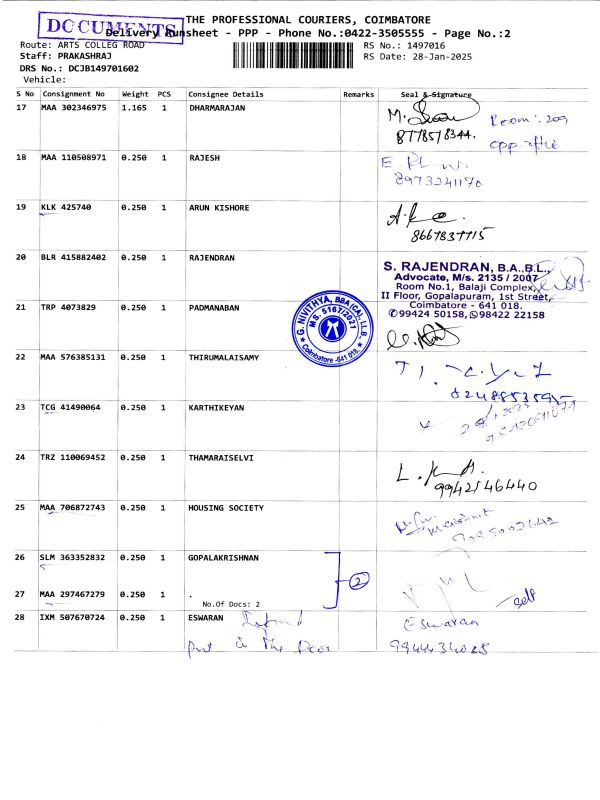 THE PROFESSIONAL COURIERS, COIMBATORE
DOCUMENTS
Delivery Runsheet - PPP - Phone No.:0422-3505555 - Page No.:2
Route: ARTS COLLEG ROAD
RS No.: 1497016
Staff: PRAKASHRAJ
RS Date: 28-Jan-2025
DRS No.: DCJB149701602
Vehicle:
S No Consignment No Weight PCS Consignee Details Remarks Seal & Signature
17 MAA 302346975 1.165 1 DHARMARAJAN
Room: 209
8778578344.
18 MAA 110508971 0.250 1 RAJESH
8973241170
19 KLK 425740 0.250 1 ARUN KISHORE
8667837715
20 BLR 415882402 0.250 1 RAJENDRAN
S. RAJENDRAN, B.A.,B.L.,
Advocate, M/s. 2135 / 2007
Room No.1, Balaji Complex,
II Floor, Gopalapuram, 1st Street,
Coimbatore - 641 018.
99424 50158, 98422 22158
21 TRP 4073829 0.250 1 PADMANABAN
G. NIVITHYA, BBA(CA), LL.B.,
MS. 5167/2021
Coimbatore -641 018.
22 MAA 576385131 0.250 1 THIRUMALAISAMY
23 TCG 41490064 0.250 1 KARTHIKEYAN
24 TRZ 110069452 0.250 1 THAMARAISELVI
9942546440
25 MAA 706872743 0.250 1 HOUSING SOCIETY
26 SLM 363352832 0.250 1 GOPALAKRISHNAN
2
27 MAA 297467279 0.250 1 .
No.Of Docs: 2
self
28 IXM 507670724 0.250 1 ESWARAN
Eswaran
put in the Door
9944434025